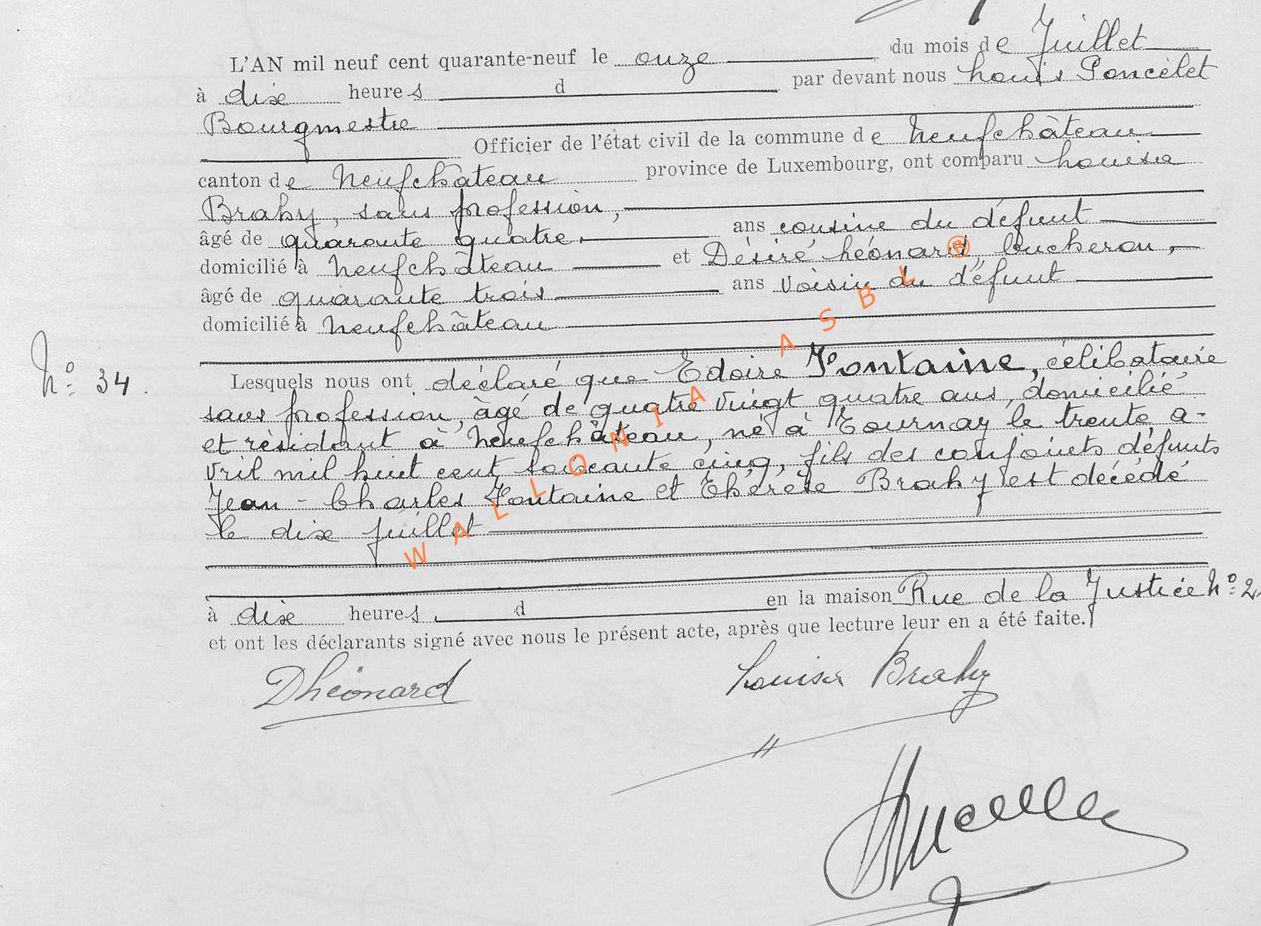 L'AN mil neuf cent quarante-neuf le onze du mois de Juillet
à dix heures d par devant nous Louis Poncelet
Bourgmestre
Officier de l'état civil de la commune de Neufchâteau
canton de Neufchâteau province de Luxembourg, ont comparu Louisa
Brahy, sans profession,
âgé de quarante quatre ans cousine du défunt
domicilié à Neufchâteau et Désiré Léonard, bucheron,
âgé de quarante trois ans voisin du défunt
domicilié à Neufchâteau
N° 34.
Lesquels nous ont déclaré que Edoire Fontaine, célibataire
sans profession, âgé de quatre vingt quatre ans, domicilié
et résidant à Neufchâteau, né à Tournay le trente a-
vril mil huit cent soixante cinq, fils des conjoints défunts
Jean-Charles Fontaine et Thérèse Brahy est décédé
le dix juillet
à dix heures d en la maison Rue de la Justice N° 2.
et ont les déclarants signé avec nous le présent acte, après que lecture leur en a été faite.
DLéonard Louisa Brahy
WALLONIA ASBL ®